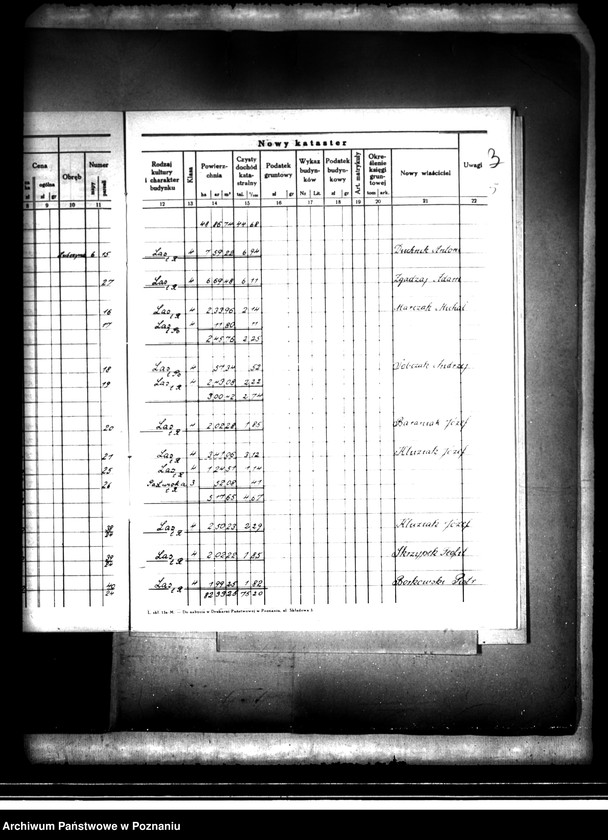 Nowy kataster
3
Cena
Obręb
Numer
ogólna
mapy
parceli
zł gr
Rodzaj kultury i charakter budynku
Klasa
Powierzchnia
ha ar m²
Czysty dochód katastralny
tal. 1/100
Podatek gruntowy
zł gr
Wykaz budynków
Nr Lit.
Podatek budynkowy
zł gr
Art. matrykuły
Określenie księgi gruntowej
tom ark.
Nowy właściciel
Uwagi
8 9 10 11
12 13 14 15 16 17 18 19 20 21 22
48 86,74 44,68
6 15 Las 4 7 59,22 6,94 Antoni
27 Las 4 6 69,48 6,11 Adam
16 Las 4 2 33,96 2,14 Marczak Michał
17 4 11,80 11
2 45,76 2,25
18 4 57,34 52 Andrzej
19 Las 4 2 43,08 2,22
3 00,42 2,74
20 Las 4 2 02,28 1,85 Baraniak Józef
21 Las 4 3,12 Kluziak Józef
25 Las 4 1 24,51 1,14
26 3 52,08 41
5 17,65 4,67
38 Las 4 2 50,23 2,29 Kluziak Józef
39 Las 4 2 02,22 1,85 Skrzypek
40 Las 4 1 99,25 1,82 Borkowski Piotr
24 82 39,25 75,20
Archiwum Państwowe w Poznaniu